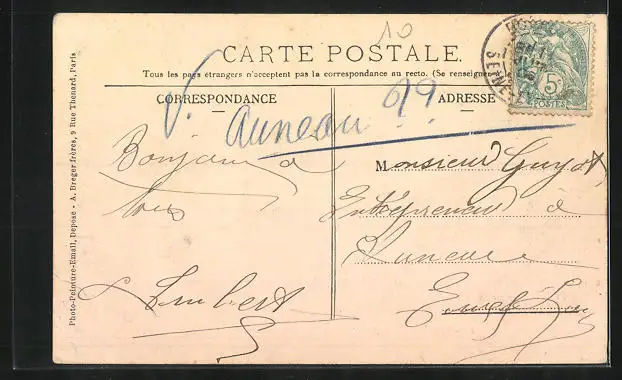 10
CARTE POSTALE.
Tous les pays étrangers n'acceptent pas la correspondance au recto. (Se renseigner
CORRESPONDANCE
ADRESSE
V.
Auneau 699
Bonjour à
tous
Imbert
Monsieur Guyot
Entrepreneur à
Auneau
Eure & Loir
Photo-Peinture-Email, Deposé - A. Breger frères, 9 Rue Thenard, Paris
5c
POSTES
SEINE